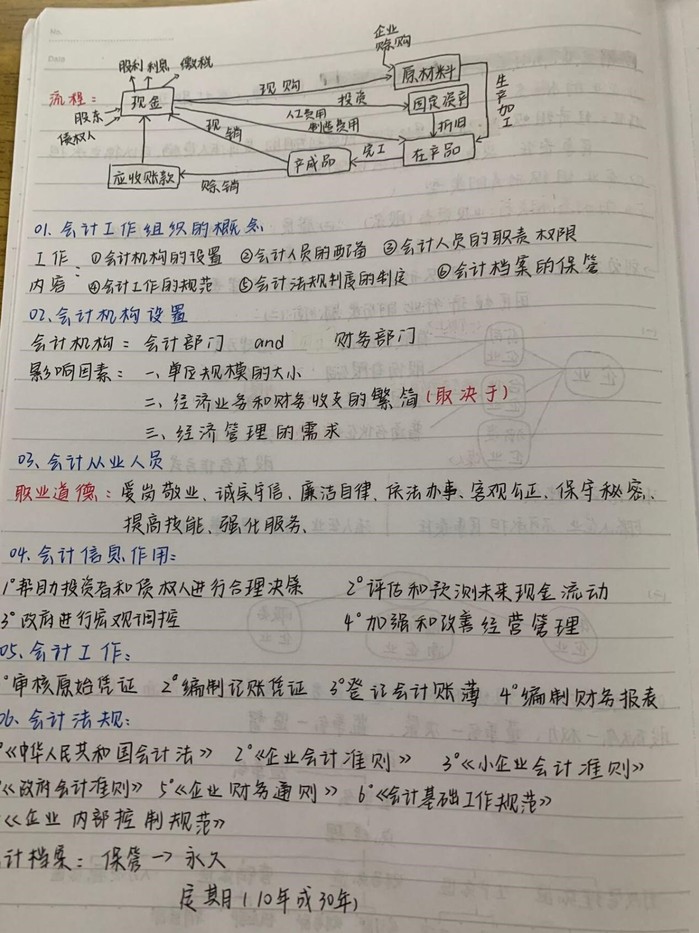 No.
Date
企业
赊购
股利 利息 缴税
现购
原材料
流程：
现金
投资
固定资产
生产加工
股东
债权人
人工费用
制造费用
折旧
现销
完工
在产品
产成品
应收账款
赊销
01. 会计工作组织的概念
工作 ①会计机构的设置 ②会计人员的配备 ③会计人员的职责权限
内容： ④会计工作的规范 ⑤会计法规制度的制定 ⑥会计档案的保管
02. 会计机构设置
会计机构：会计部门 and 财务部门
影响因素：一、单位规模的大小
二、经济业务和财务收支的繁简（取决于）
三、经济管理的需求
03、会计从业人员
职业道德：爱岗敬业、诚实守信、廉洁自律、依法办事、客观公正、保守秘密、
提高技能、强化服务、
04. 会计信息作用：
1°帮助投资者和债权人进行合理决策 2°评估和预测未来现金流动
3°政府进行宏观调控 4°加强和改善经营管理
05. 会计工作：
°审核原始凭证 2°编制记账凭证 3°登记会计账薄 4°编制财务报表
06. 会计法规：
°《中华人民共和国会计法》 2°《企业会计准则》 3°《小企业会计准则》
°《政府会计准则》 5°《企业财务通则》 6°《会计基础工作规范》
《企业内部控制规范》
计档案：保管→永久
定期（10年或30年）